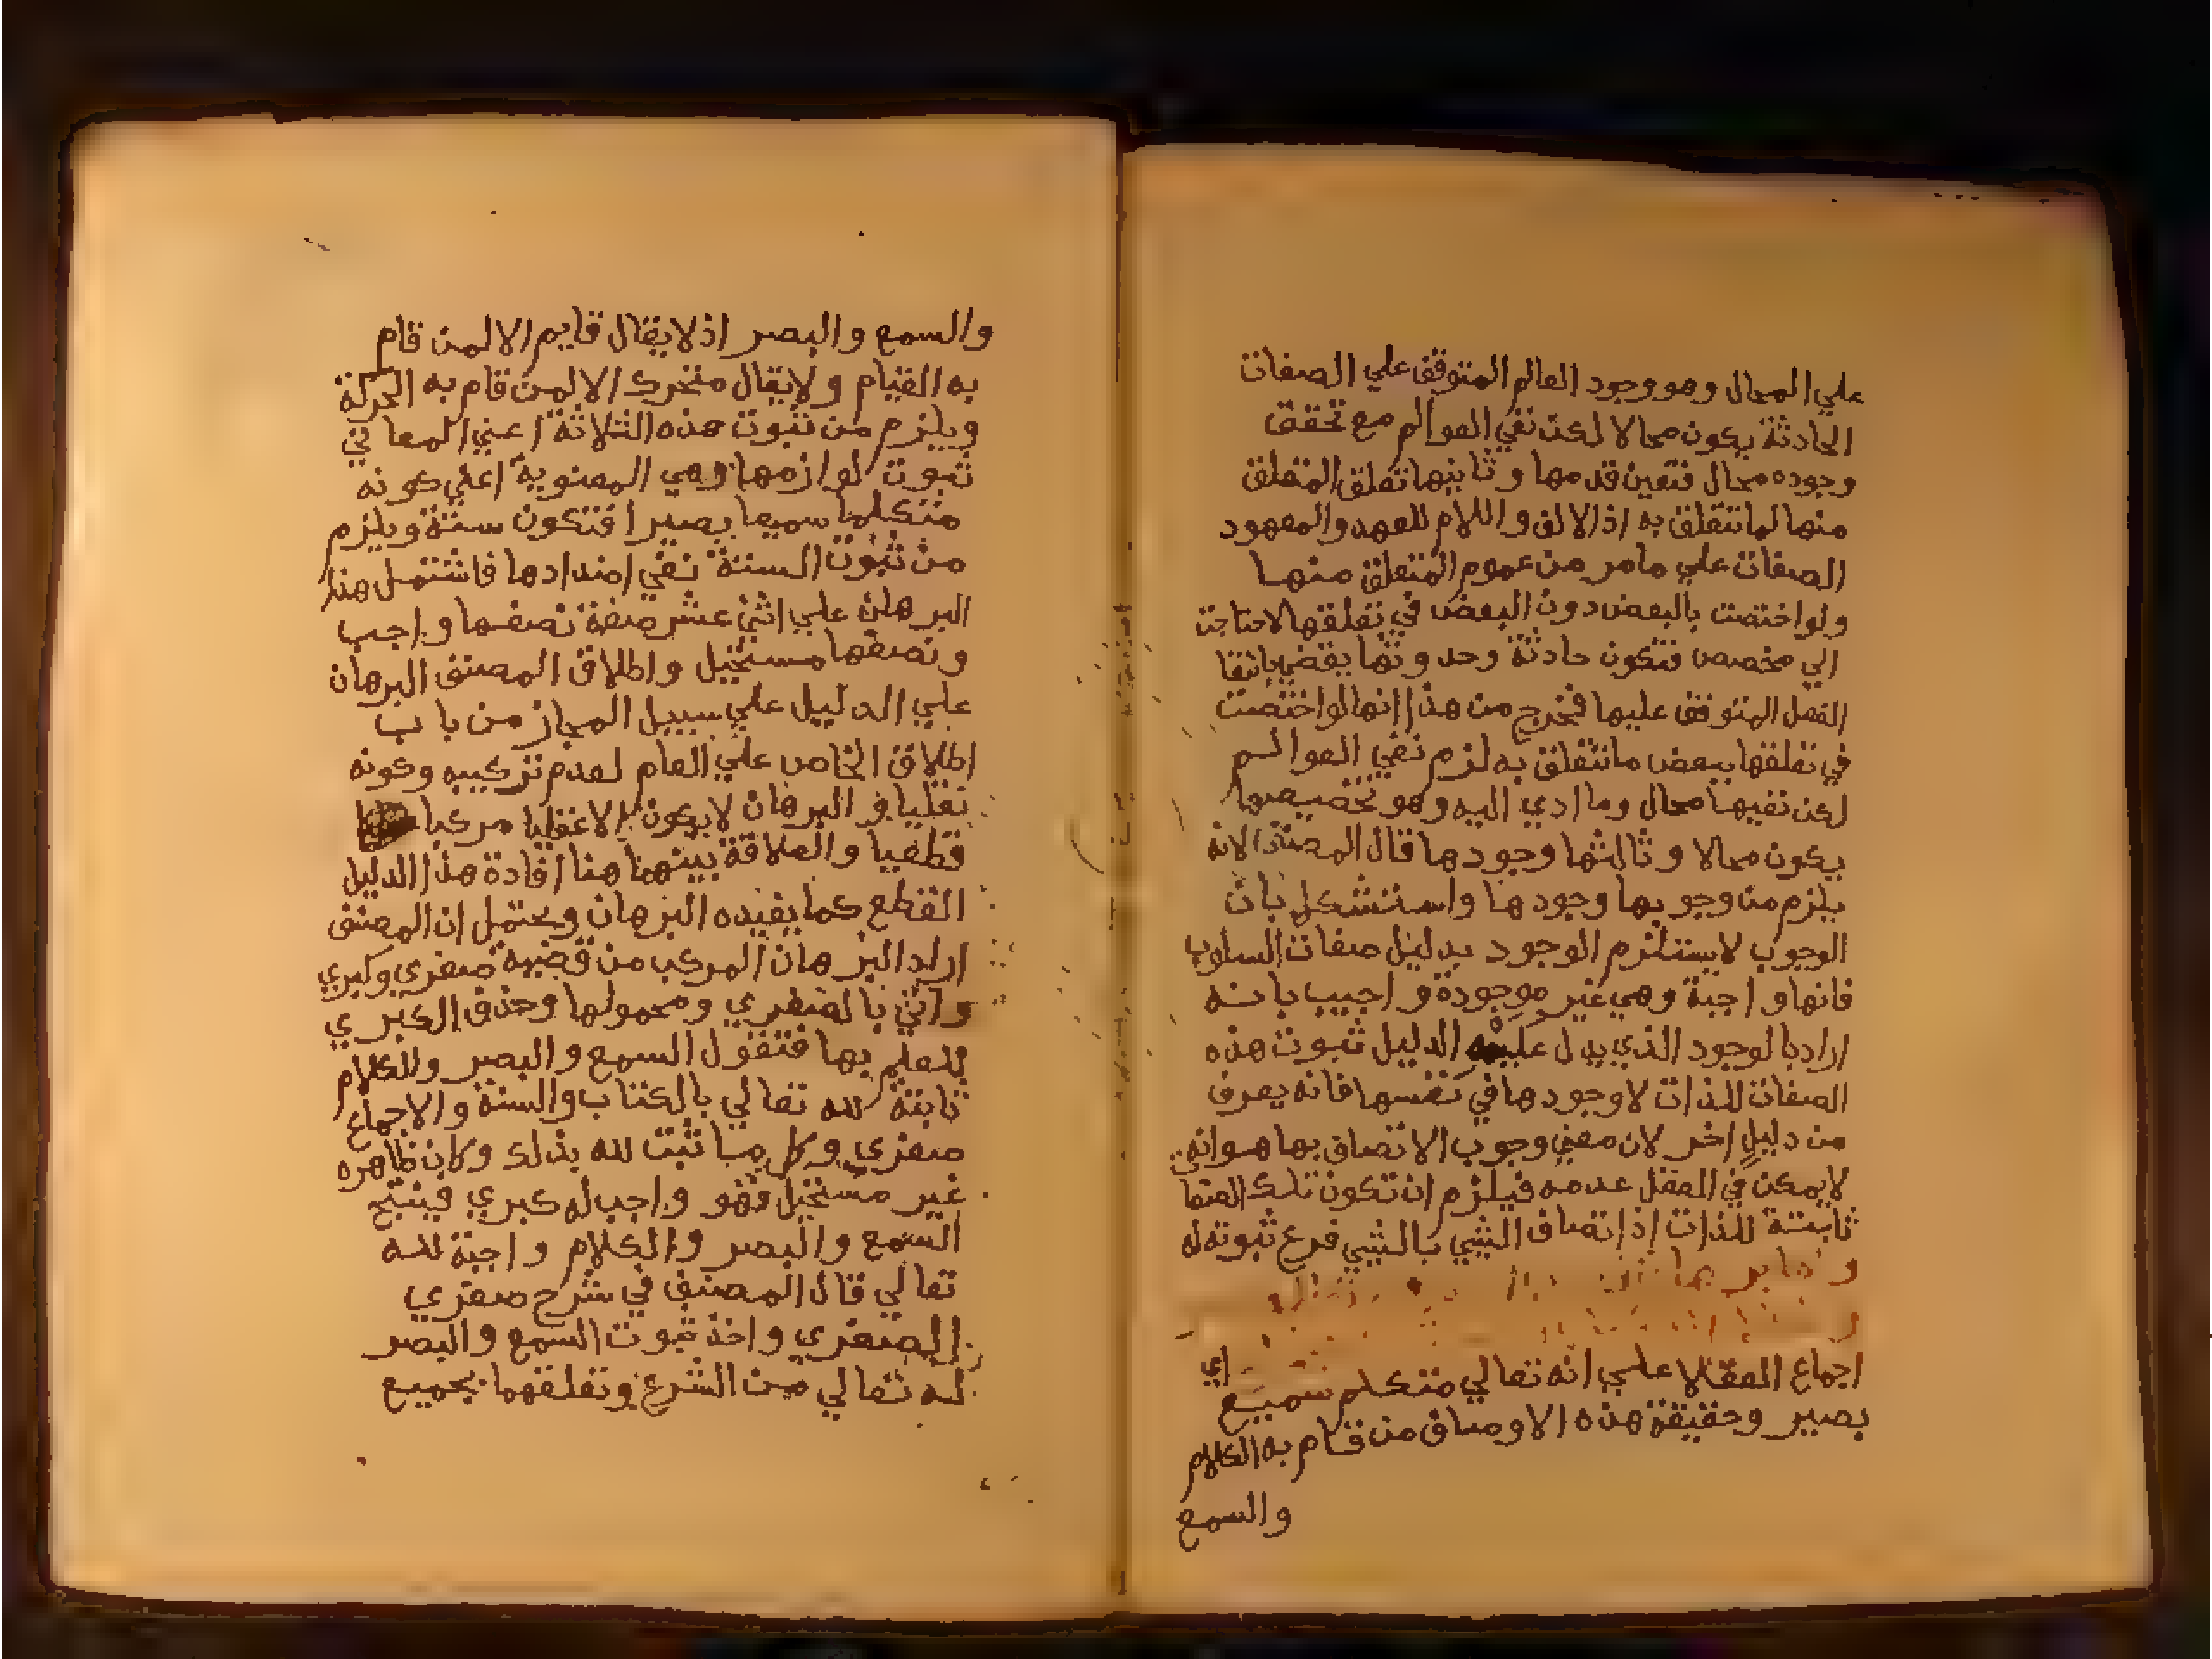 علي المحال وهو وجود العالم المتوقف علي الصفات
الحادثة يكون محالا لكن نفي العوالم مع تحقق
وجوده محال فتعين قدمها وثانيها تعلق المتعلق
منها لما تتعلق به اذ الالف واللام للعهد والمعهود
الصفات علي مامر من عموم المتعلق منها
ولو اختصت بالبعض دون البعض في تعلقها لاحتاجت
الي مخصص فتكون حادثة وحدوثها يقضي بانتفا
الفعل المتوقف عليها فخرج من هذا انها لو اختصت
في تعلقها ببعض ماتتعلق به لزم نفي العوالم
لكن نفيها محال وما ادي اليه وهو تخصيصها
يكون محالا وثالثها وجودها قال المصنف لانه
يلزم من وجوبها وجودها واستشكل بان
الوجوب لايستلزم الوجود بدليل صفات السلوب
فانها واجبة وهي غير موجودة واجيب بانه
اراد بالوجود الذي يدل عليه الدليل ثبوت هذه
الصفات للذات لاوجودها في نفسها فانه يعرف
من دليل اخر لان معني وجوب الاتصاف بها هو انه
لايمكن في العقل عدمه فيلزم ان تكون تلك الصفا
ثابتة للذات اذ اتصاف الشي بالشي فرع ثبوته له
اجماع العقلا علي انه تعالي متكلم سميع اي
بصير وحقيقة هذه الاوصاف من قام به الكلام
والسمع
والسمع والبصر اذ لايقال قايم الا لمن قام
به القيام ولايقال متحرك الا لمن قام به الحركة
ويلزم من ثبوت هذه الثلاثة اعني المعاني
ثبوت لوازمها وهي المعنوية اعني كونه
متكلما سميعا بصيرا فتكون ستة ويلزم
من ثبوت الستة نفي اضدادها فاشتمل هذا
البرهان علي اثني عشر صفة نصفها واجب
ونصفها مستحيل واطلاق المصنف البرهان
علي الدليل علي سبيل المجاز من باب
اطلاق الخاص علي العام لعدم تركيبه وكونه
نقليا والبرهان لايكون الا عقليا مركبا
قطعيا والعلاقة بينهما هنا افادة هذا الدليل
القطع كما يفيده البرهان ويحتمل ان المصنف
اراد البرهان المركب من قضية صغري وكبري
واتي بالصغري ومحمولها وحذف الكبري
للعلم بها فتقول السمع والبصر والكلام
ثابتة لله تعالي بالكتاب والسنة والاجماع
صغري وكل ما ثبت لله بذلك وكان ظاهره
غير مستحيل فهو واجب له كبري فينتج
السمع والبصر والكلام واجبة لله
تعالي قال المصنف في شرح صغري
الصغري واخذ ثبوت السمع والبصر
له تعالي من الشرع وتعلقهما بجميع